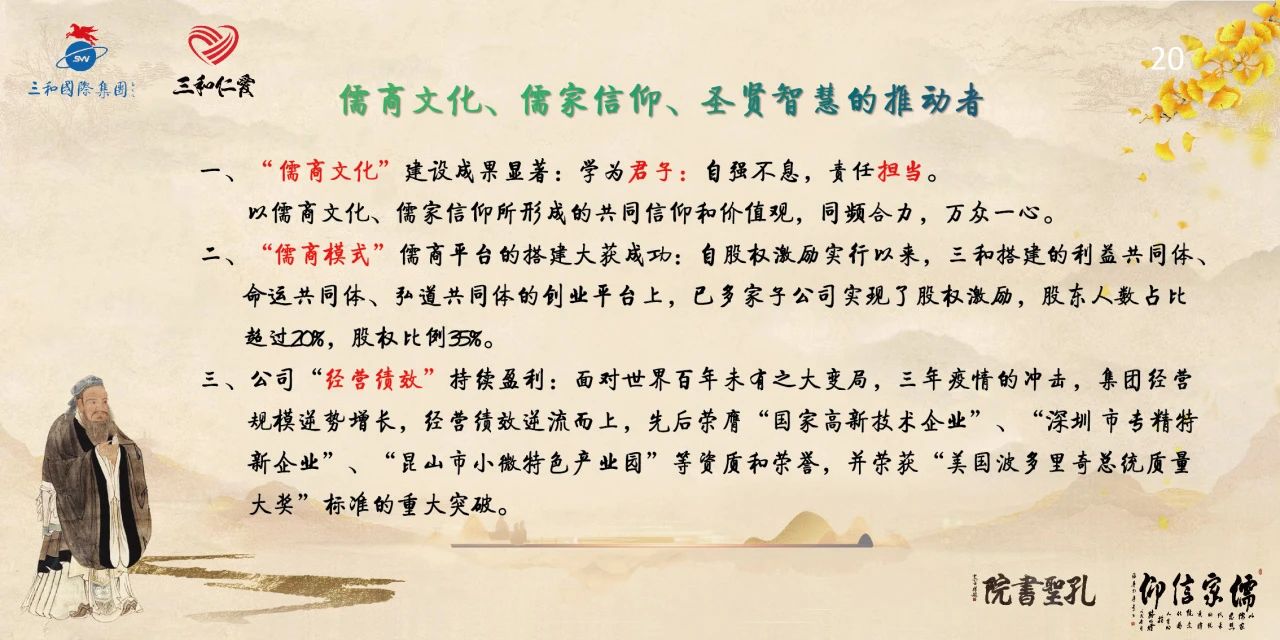 SW
三和國際集團
三和仁愛
20
儒商文化、儒家信仰、圣贤智慧的推动者
一、“儒商文化”建设成果显著：学为君子：自强不息，责任担当。
以儒商文化、儒家信仰所形成的共同信仰和价值观，同频合力，万众一心。
二、“儒商模式”儒商平台的搭建大获成功：自股权激励实行以来，三和搭建的利益共同体、
命运共同体、弘道共同体的创业平台上，已多家子公司实现了股权激励，股东人数占比
超过20%，股权比例35%。
三、公司“经营绩效”持续盈利：面对世界百年未有之大变局，三年疫情的冲击，集团经营
规模逆势增长，经营绩效逆流而上，先后荣膺“国家高新技术企业”、“深圳市专精特
新企业”、“昆山市小微特色产业园”等资质和荣誉，并荣获“美国波多里奇总统质量
大奖”标准的重大突破。
院書聖孔
仰信家儒